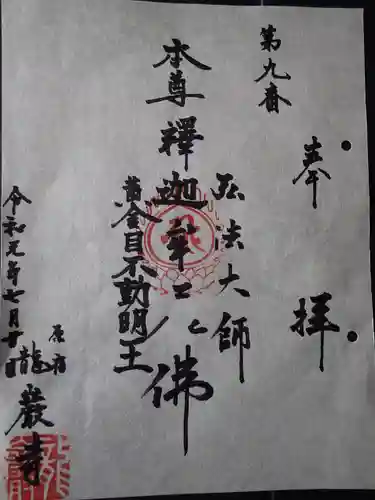 奉拝
第九番
弘法大師
本尊 釋迦牟尼佛
黄金目不動明王
原宿
龍巖寺
令和元年七月十日